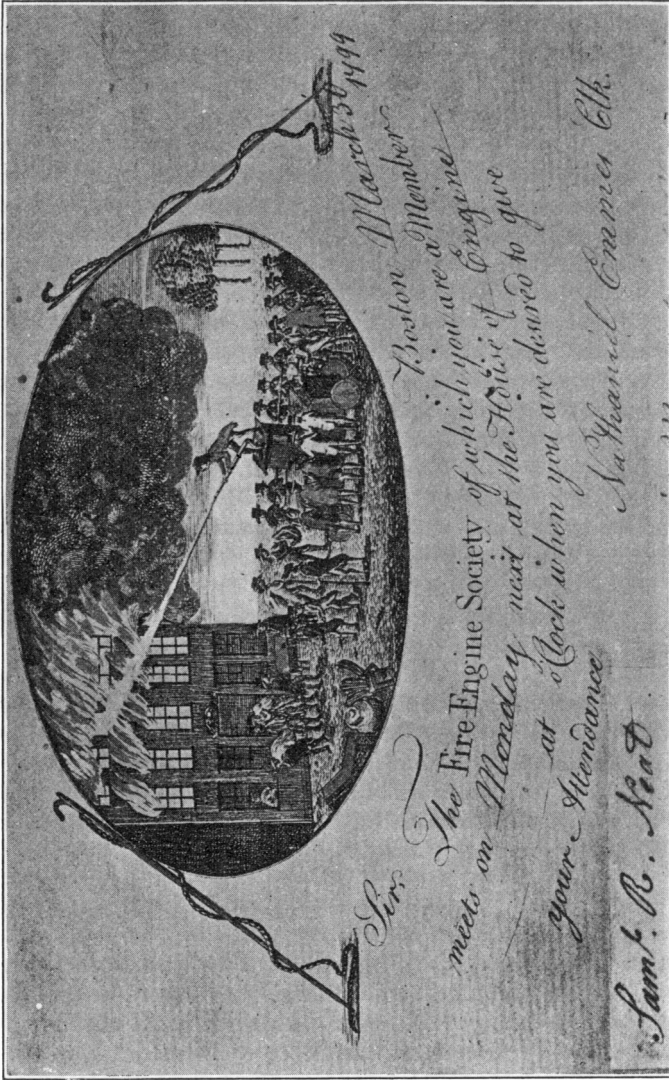 Boston March 30 1799
Sir,
The Fire-Engine Society of which you are a Member
meets on Monday next at the House of Engine
at o'Clock when you are desired to give
your Attendance
Nathaniel Emmes Clk.
Saml. R.